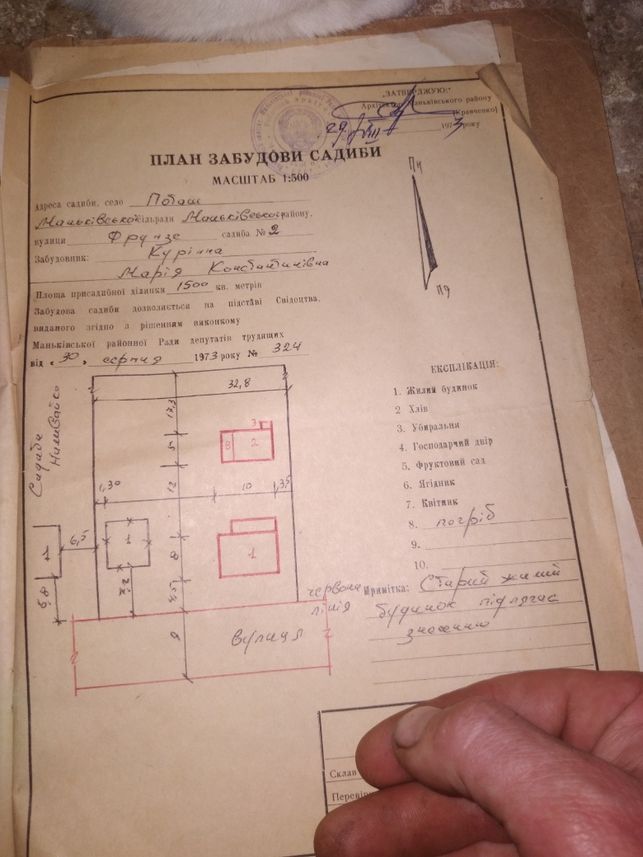 „ЗАТВЕРДЖУЮ:"
Архітектор Маньківського району
Кравченко
29 1973 року
ПЛАН ЗАБУДОВИ САДИБИ
МАСШТАБ 1:500
Адреса садиби, село Поташ
Маньківської сільради Маньківського району,
вулиця Фрунзе садиба № 2
Забудовник: Курінна
Марія Константинівна
Площа присадибної ділянки 1500 кв. метрів
Забудова садиби дозволяється на підставі Свідоцтва,
виданого згідно з рішенням виконкому
Маньківської районної Ради депутатів трудящих
від „30„ серпня 1973 року № 324
Пн
Пд
ЕКСПЛІКАЦІЯ:
1. Жилий будинок
2 Хлів
3. Убиральня
4. Господарчий двір
5. Фруктовий сад
6. Ягідник
7. Квітник
8. погріб
9.
10.
Примітка: Старий жилий
будинок підлягає
знесенню
Садиба
32,8
17,3
5
3
8
2
12
1,30
10
3,5
6,5
1
1
1
8
5,8
8
вулиця
червона
лінія
Склав
Перевірив